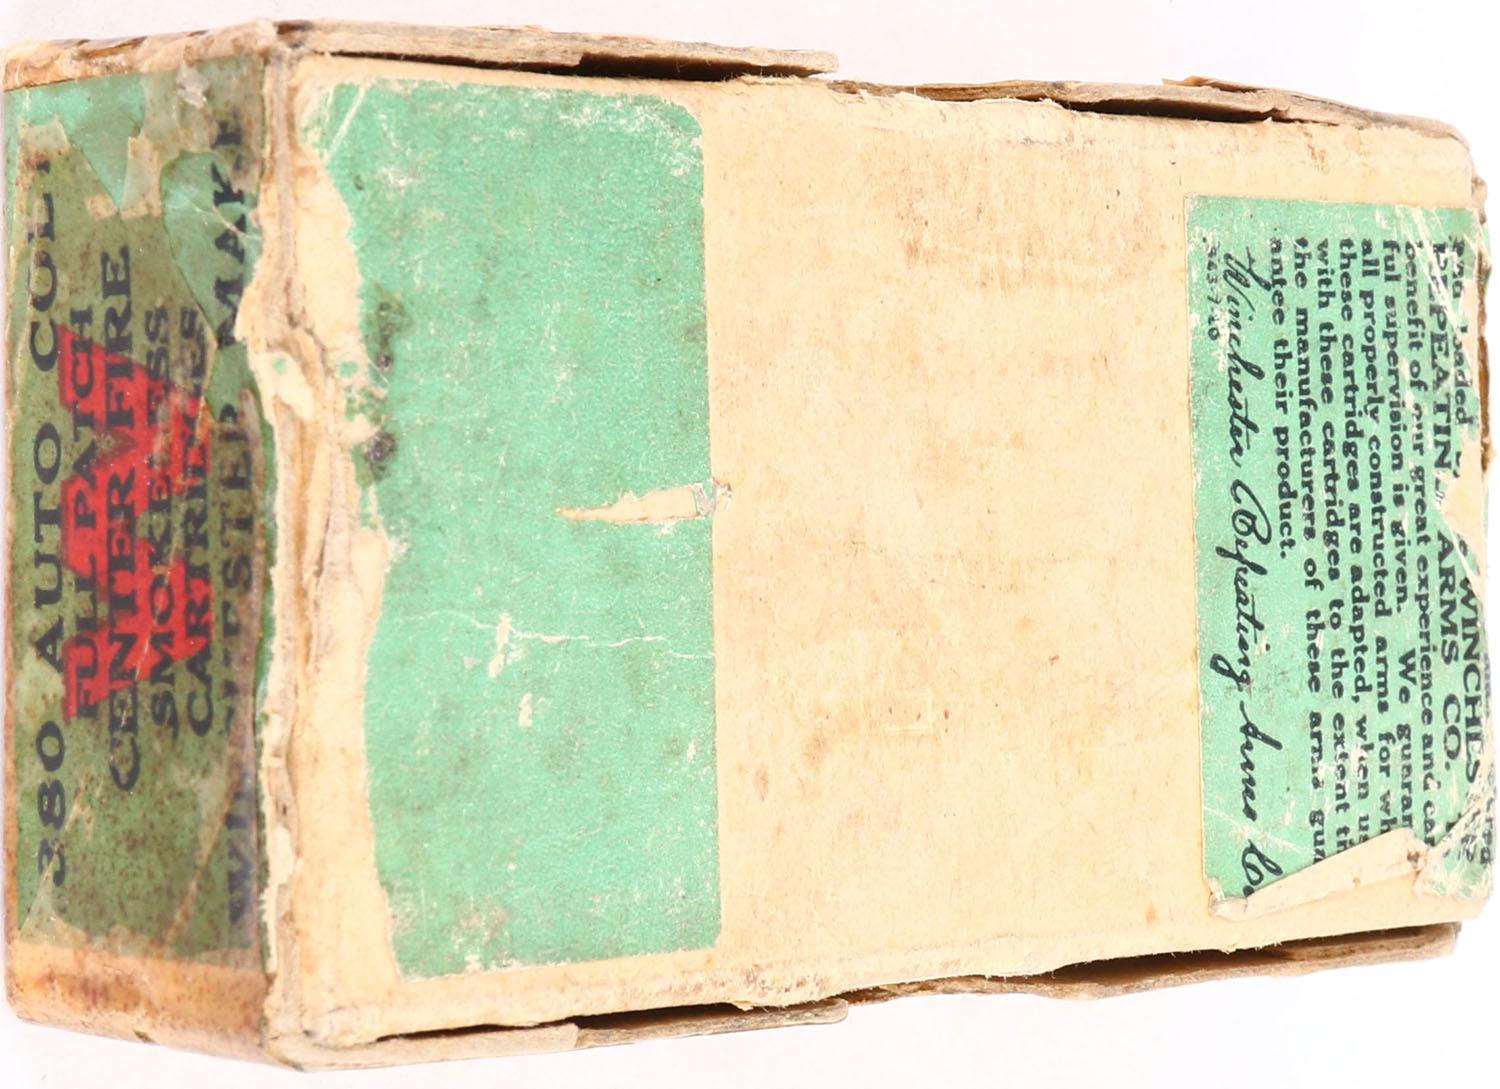 380 AUTO COLT
FULL PATCH
CENTER FIRE
SMOKELESS
CARTRIDGES
W
MAKE
loaded
WINCHES
REPEATIN ARMS CO.
benefit of our great experience and care
ful supervision is given. We guaran
all properly constructed arms for wh
these cartridges are adapted, when us
with these cartridges to the extent th
the manufacturers of these arms gua
antee their product.
Winchester Repeating Arms Co.